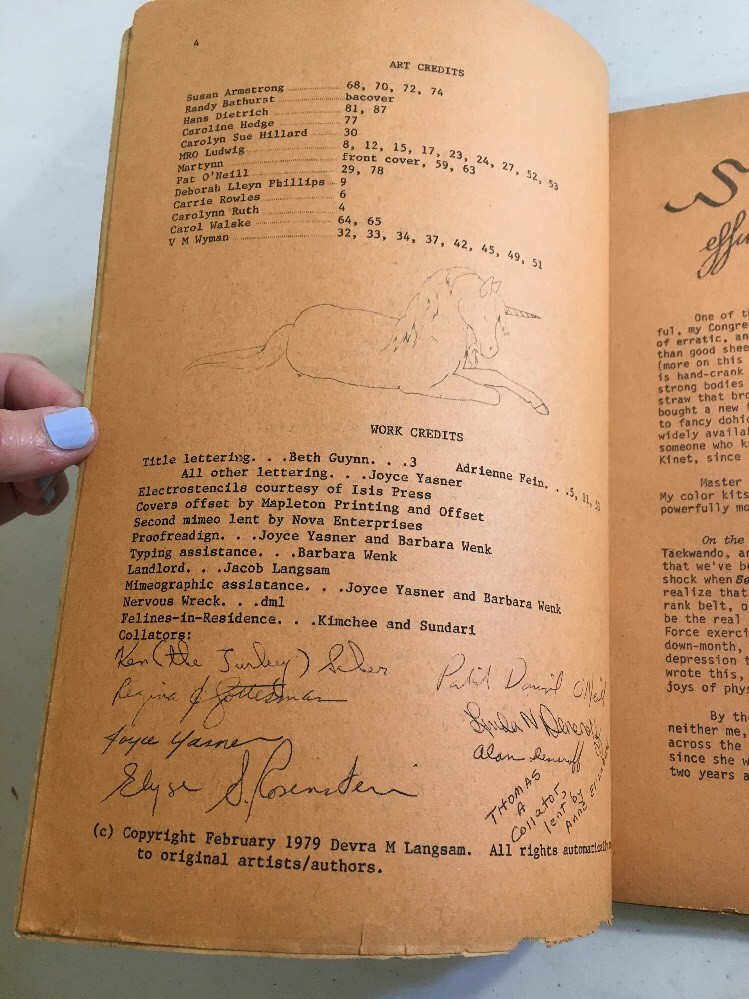 4
ART CREDITS
Susan Armstrong 68, 70, 72, 74
Randy Bathurst bacover
Hans Dietrich 81, 87
Caroline Hedge 77
Carolyn Sue Hillard 30
MRO Ludwig 8, 12, 15, 17, 23, 24, 27, 52, 53
Martynn front cover, 59, 63
Pat O'Neill 29, 78
Deborah Lleyn Phillips 9
Carrie Rowles 6
Carolynn Ruth 4
Carol Walske 64, 65
V M Wyman 32, 33, 34, 37, 42, 45, 49, 51
WORK CREDITS
Title lettering. . .Beth Guynn. . .3 Adrienne Fein. . .5, 11,
All other lettering. . .Joyce Yasner
Electrostencils courtesy of Isis Press
Covers offset by Mapleton Printing and Offset
Second mimeo lent by Nova Enterprises
Proofreadign. . .Joyce Yasner and Barbara Wenk
Typing assistance. . .Barbara Wenk
Landlord. . .Jacob Langsam
Mimeographic assistance. . .Joyce Yasner and Barbara Wenk
Nervous Wreck. . .dml
Felines-in-Residence. . .Kimchee and Sundari
Collators:
Ken (the Turkey) Silber
Regina Gottesman
Joyce Yasner
Elyse S. Rosenstein
Patrick Daniel O'Neill
Linda N Deneroff
Alan Deneroff
THOMAS
A
Collator,
lent by
Anne
(c) Copyright February 1979 Devra M Langsam. All rights automatically
to original artists/authors.
One of
ful, my Congre
of erratic, an
than good shee
(more on this
is hand-crank
strong bodies
straw that bro
bought a new
to fancy dohic
widely availa
someone who k
Kinet, since
Master
My color kits
powerfully mo
On the
Taekwando, a
that we've be
shock when Be
realize that
rank belt, o
be the real
Force exerci
down-month,
depression t
wrote this,
joys of phys
By th
neither me,
across the
since she w
two years a